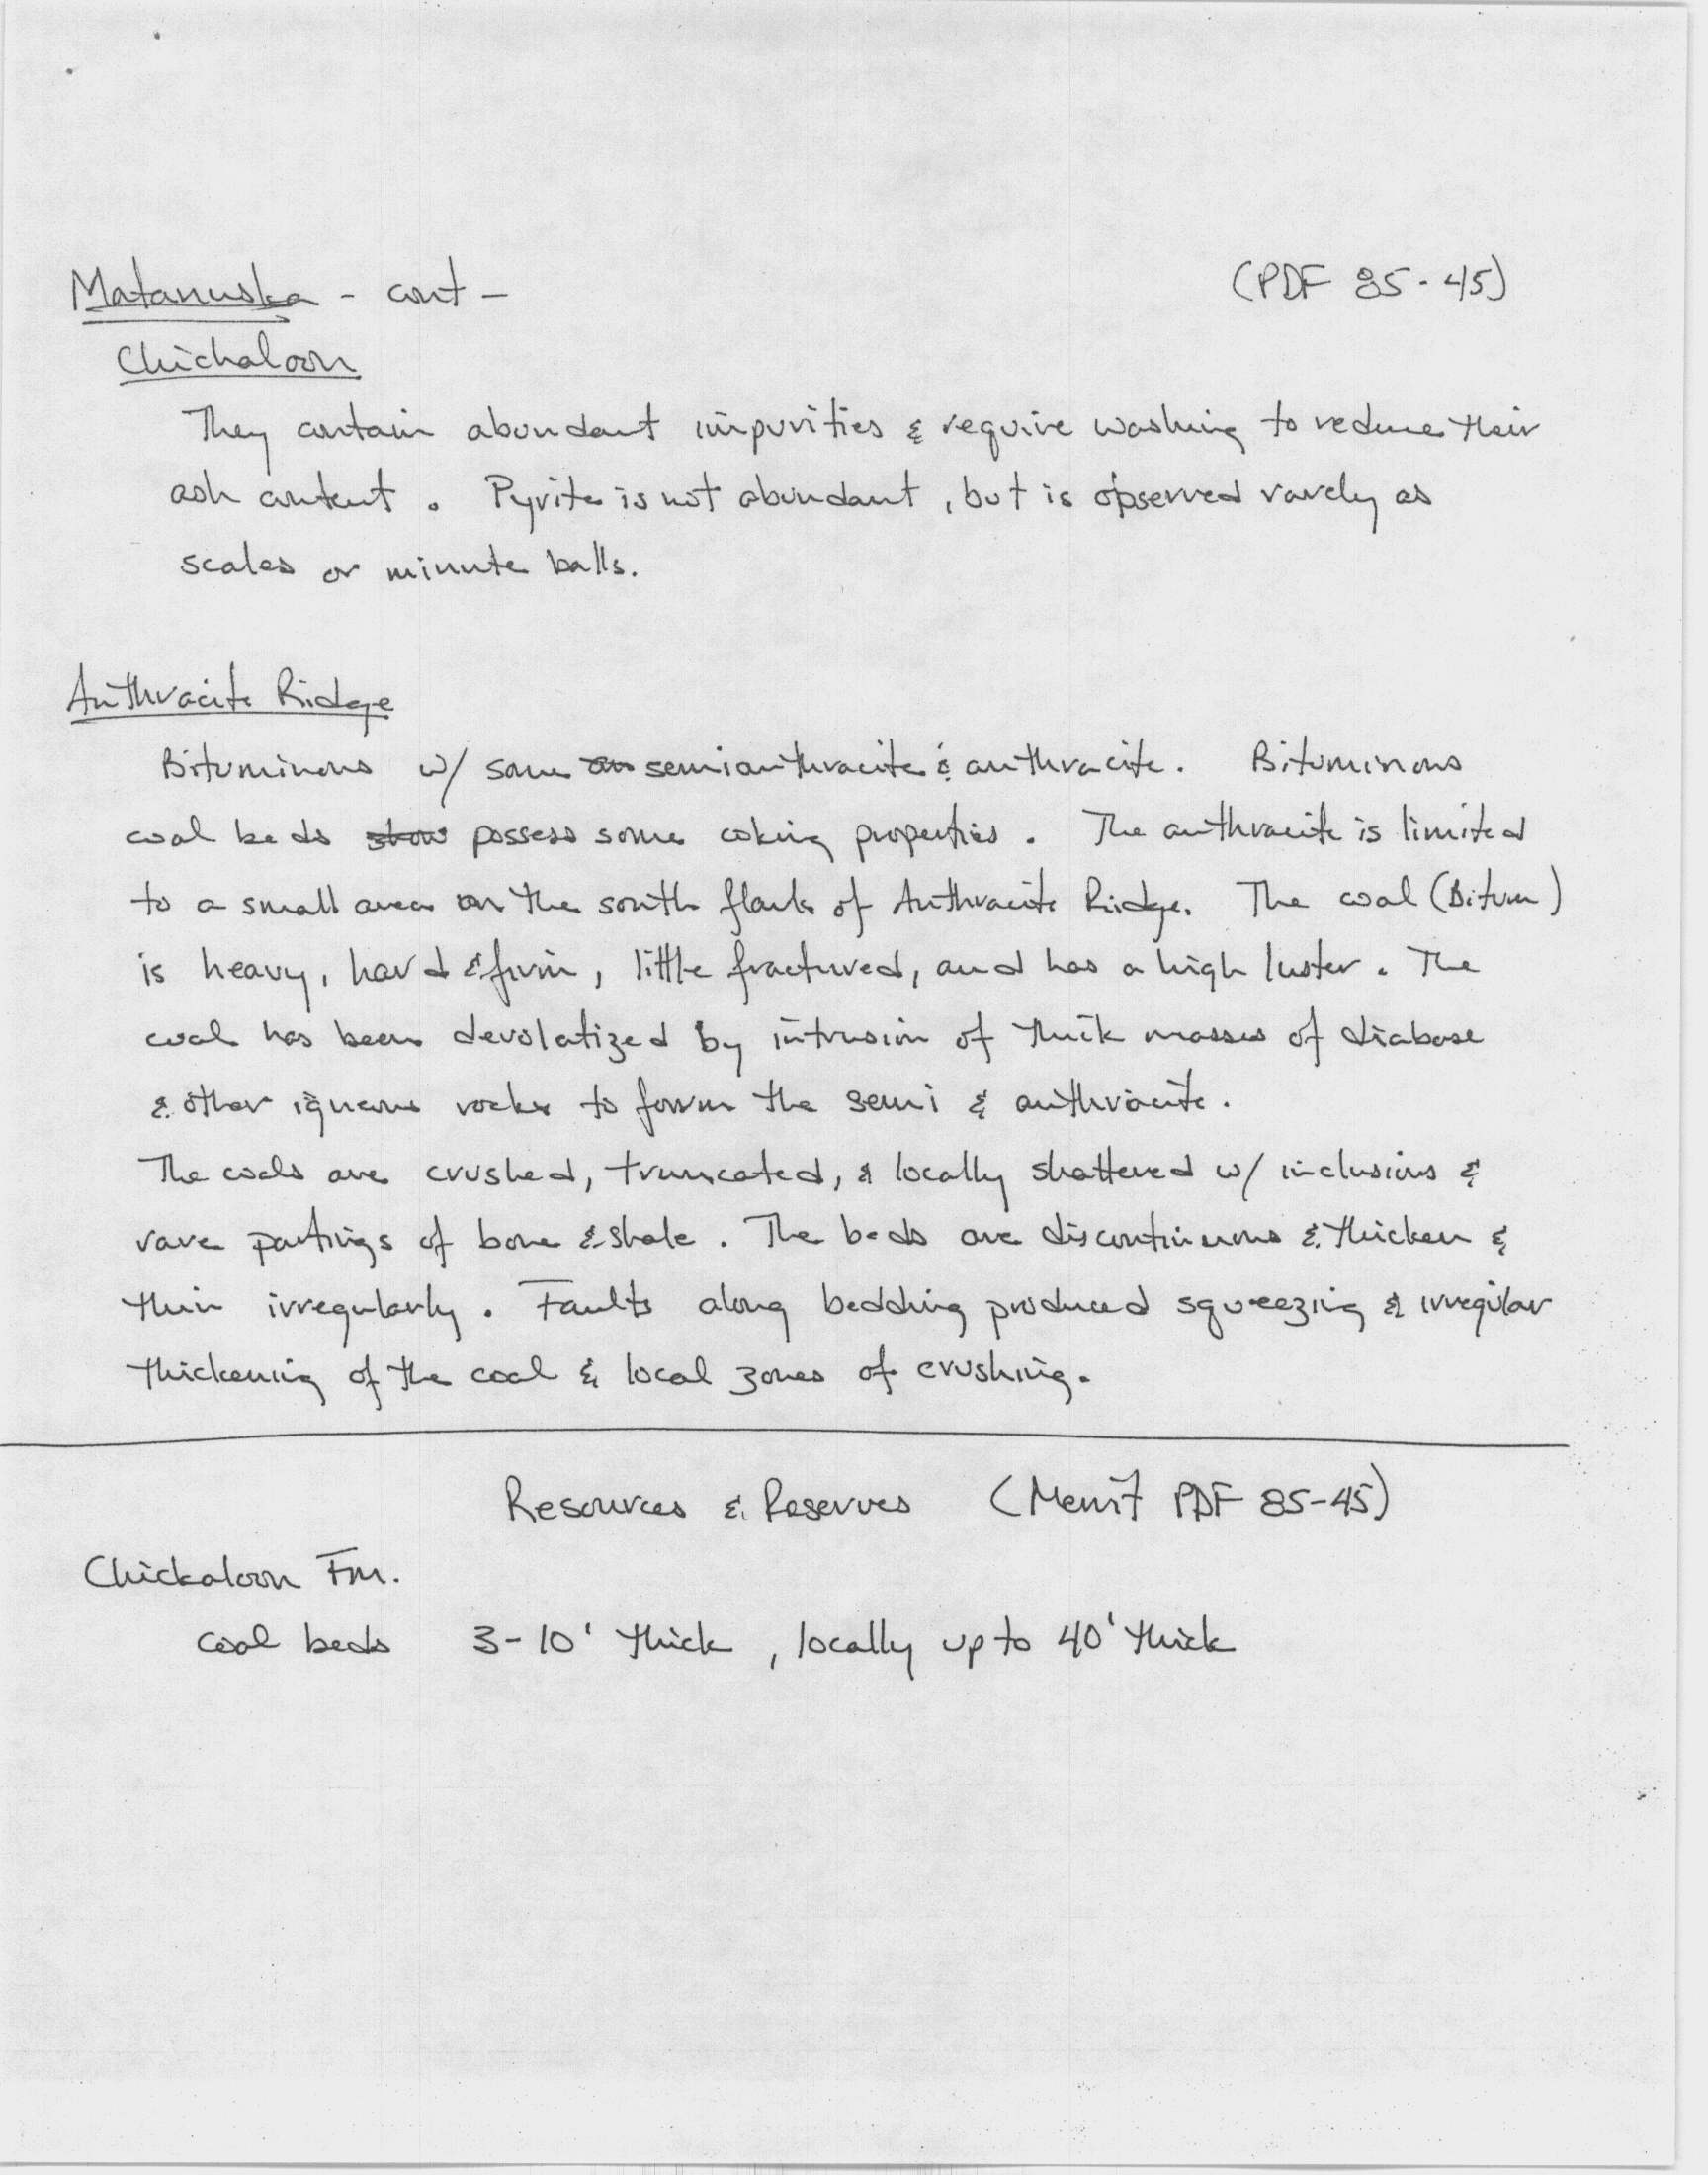 Matanuska - cont -
(PDF 85-45)
Chickaloon
They contain abundant impurities & require washing to reduce their
ash content. Pyrite is not abundant, but is observed rarely as
scales or minute balls.
Anthracite Ridge
Bituminous w/ some an semianthracite & anthracite. Bituminous
coal beds show possess some coking properties. The anthracite is limited
to a small area on the south flank of Anthracite Ridge. The coal (Bitum)
is heavy, hard & firm, little fractured, and has a high luster. The
coal has been devolatized by intrusion of thick masses of diabase
& other igneous rocks to form the semi & anthracite.
The coals are crushed, truncated, & locally shattered w/ inclusions &
rare partings of bone & shale. The beds are discontinuous & thicken &
thin irregularly. Faults along bedding produced squeezing & irregular
thickening of the coal & local zones of crushing.
Resources & Reserves (Merrit PDF 85-45)
Chickaloon Fm.
coal beds 3-10' thick, locally up to 40' thick